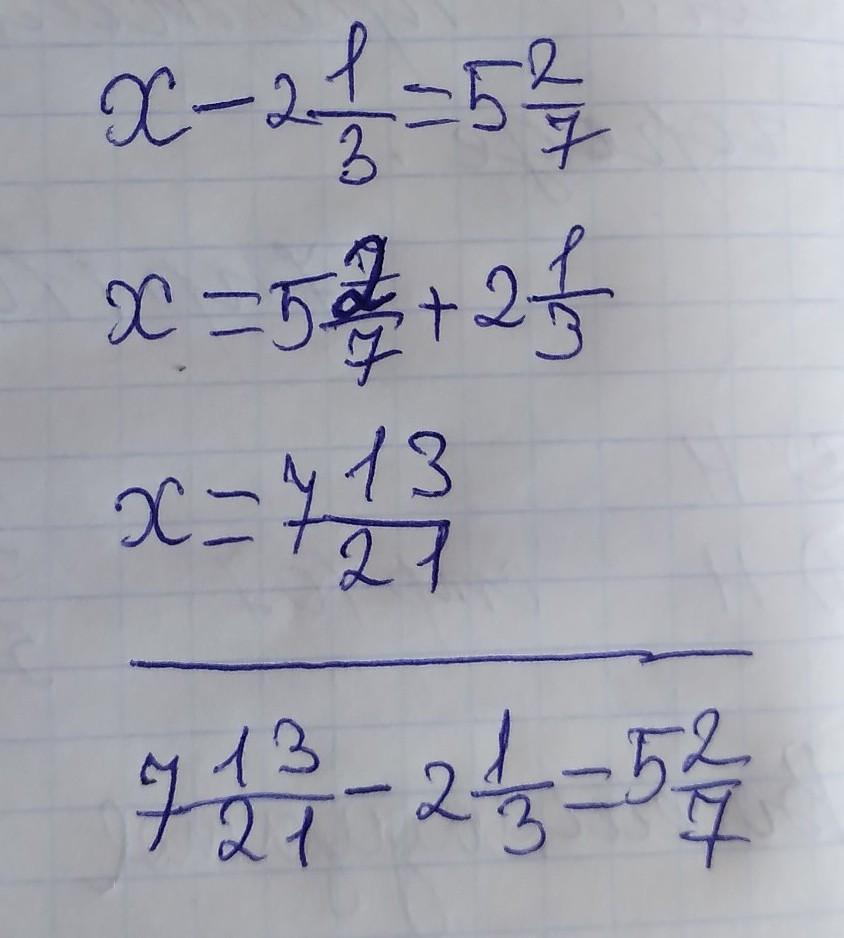 x - 2 1/3 = 5 2/7
x = 5 2/7 + 2 1/3
x = 7 13/21
7 13/21 - 2 1/3 = 5 2/7